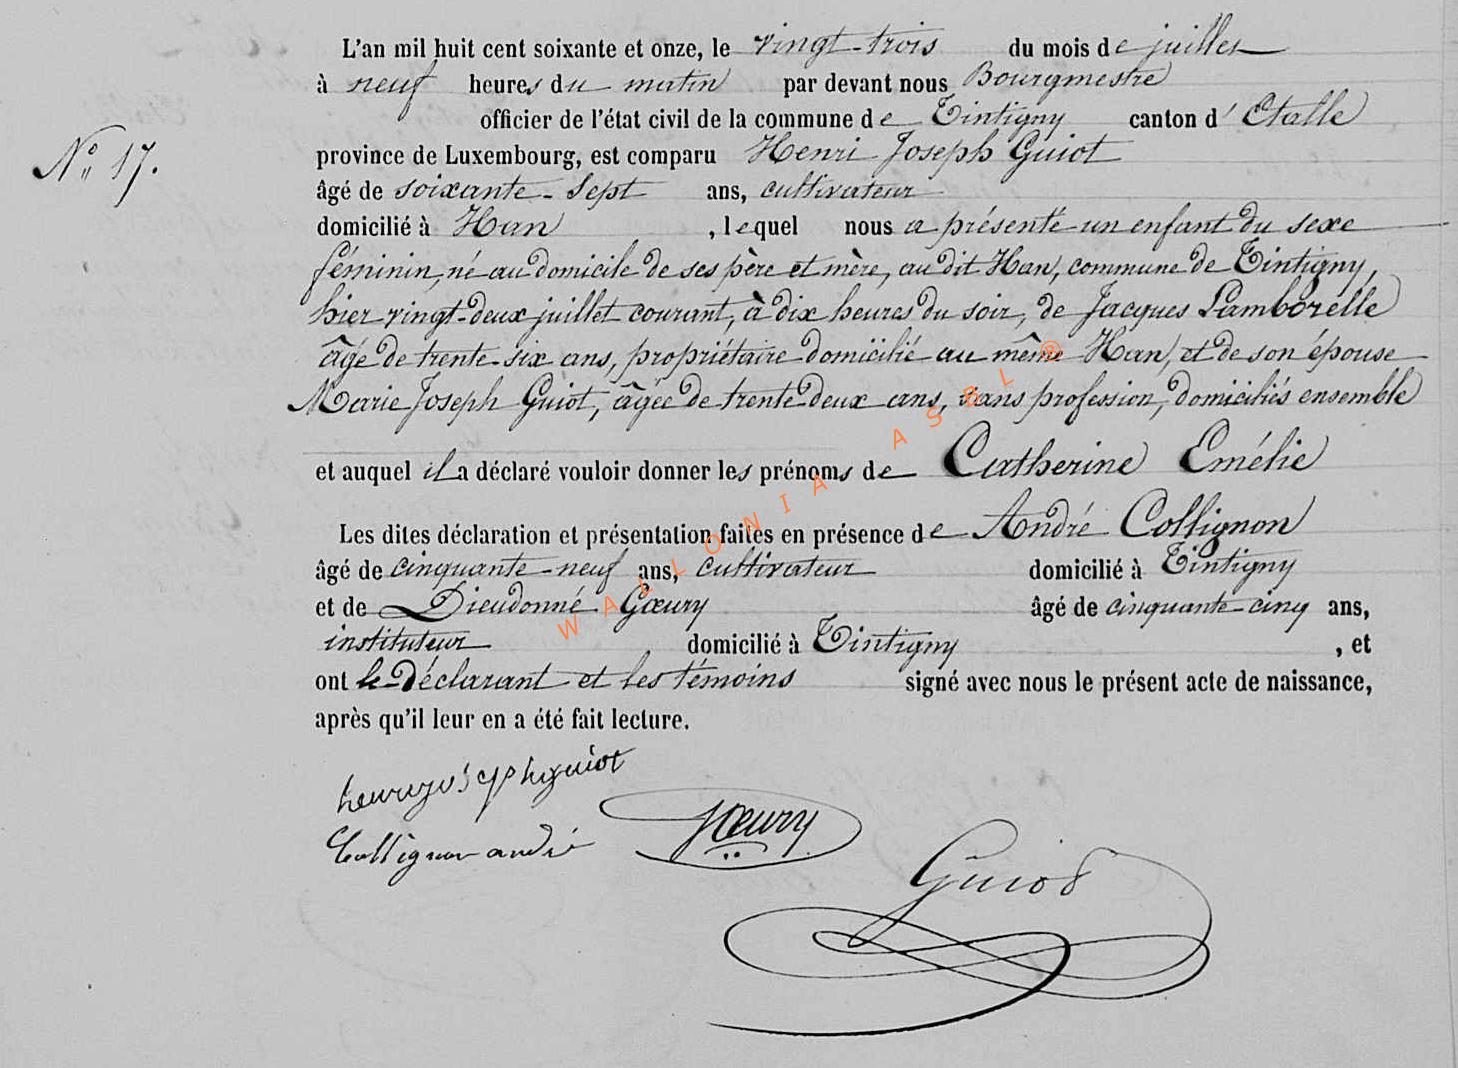 L'an mil huit cent soixante et onze, le vingt-trois du mois de juillet
à neuf heures du matin par devant nous Bourgmestre
officier de l'état civil de la commune de Tintigny canton d'Etalle
Nº 17.
province de Luxembourg, est comparu Henri Joseph Guiot
âgé de soixante-sept ans, cultivateur
domicilié à Han, lequel nous a présenté un enfant du sexe
féminin, né au domicile de ses père et mère, au dit Han, commune de Tintigny,
hier vingt-deux juillet courant, à dix heures du soir, de Jacques Lamborelle
âgé de trente-six ans, propriétaire domicilié au même Han, et de son épouse
Marie Joseph Guiot, âgée de trente-deux ans, sans profession, domiciliés ensemble
et auquel il a déclaré vouloir donner les prénoms de Catherine Emélie
Les dites déclaration et présentation faites en présence de André Collignon
âgé de cinquante-neuf ans, cultivateur domicilié à Tintigny
et de Dieudonné Gœury âgé de cinquante-cinq ans,
instituteur domicilié à Tintigny, et
ont le déclarant et les témoins signé avec nous le présent acte de naissance,
après qu'il leur en a été fait lecture.
Collignon andré
Gœury
Guiot
WALLONIA ASBL ®